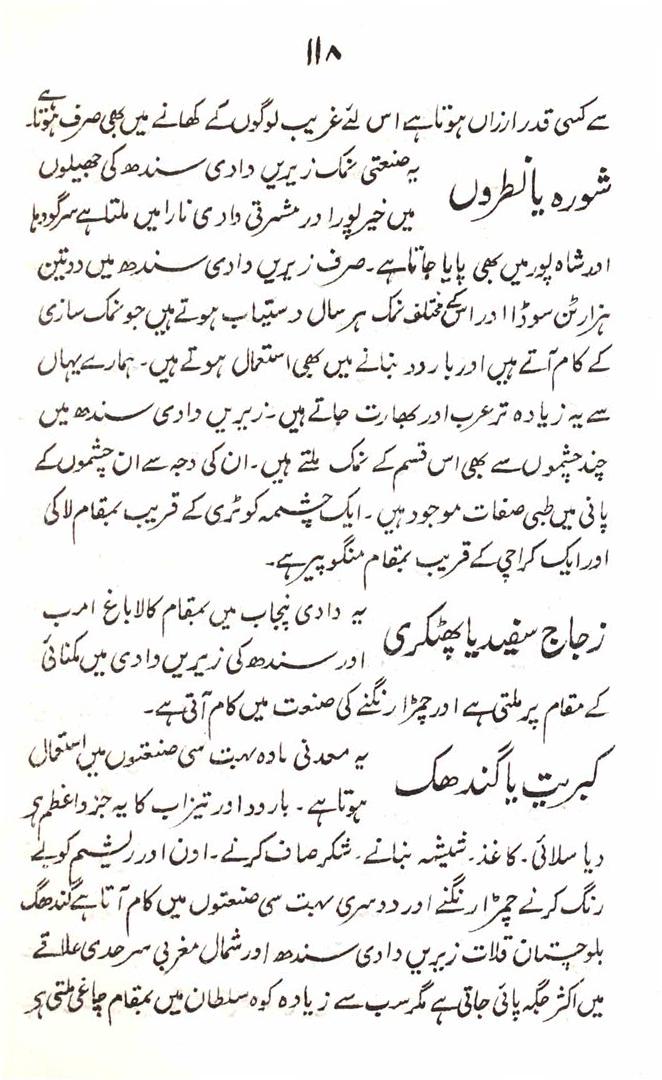 ۱۱۸
سے کسی قدر ارزاں ہوتا ہے اس لئے غریب لوگوں کے کھانے میں بھی صرف ہوتا ہے
شورہ یا نطروں
یہ صنعتی نمک زیریں وادی سندھ کی جھیلوں
میں خیر پور اور مشرقی وادی نارا میں ملتا ہے سرگودہا
اور شاہ پور میں بھی پایا جاتا ہے۔ صرف زیریں وادی سندھ میں دو تین
ہزار ٹن سوڈا اور اسکے مختلف نمک ہر سال دستیاب ہوتے ہیں جو نمک سازی
کے کام آتے ہیں اور بارود بنانے میں بھی استعمال ہوتے ہیں۔ ہمارے یہاں
سے یہ زیادہ تر عرب اور بھارت جاتے ہیں۔ زیریں وادی سندھ میں
چند چشموں سے بھی اس قسم کے نمک ملتے ہیں۔ ان کی وجہ سے ان چشموں کے
پانی میں طبی صفات موجود ہیں۔ ایک چشمہ کوٹری کے قریب بمقام لاکی
اور ایک کراچی کے قریب بمقام منگوپیر ہے۔
زجاج سفید یا پھٹکری
یہ وادی پنجاب میں بمقام کالاباغ امرب
اور سندھ کی زیریں وادی میں مکنائی
کے مقام پر ملتی ہے اور چمڑا رنگنے کی صنعت میں کام آتی ہے۔
کبریت یا گندھک
یہ معدنی مادہ بہت سی صنعتوں میں استعمال
ہوتا ہے۔ بارود اور تیزاب کا یہ جزو اعظم ہے
دیا سلائی۔ کاغذ۔ شیشہ بنانے۔ شکر صاف کرنے۔ اون اور ریشم کو بے
رنگ کرنے چمڑا رنگنے اور دوسری بہت سی صنعتوں میں کام آتا ہے گندھک
بلوچستان قلات زیریں وادی سندھ اور شمال مغربی سرحدی علاقے
میں اکثر جگہ پائی جاتی ہے مگر سب سے زیادہ کوہ سلطان میں بمقام چاغی ملتی ہے